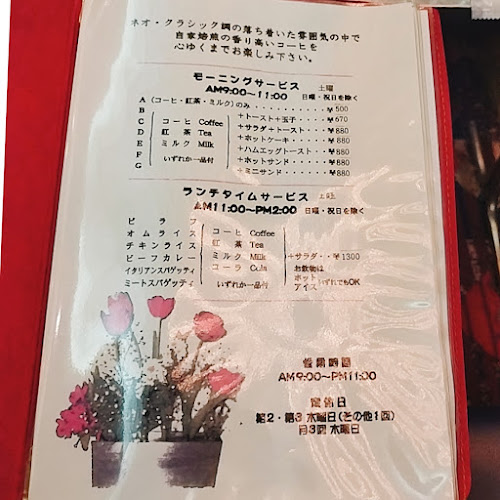 ネオ・クラシック調の落ち着いた雰囲気の中で
自家焙煎の香り高いコーヒを
心ゆくまでお楽しみ下さい。
モーニングサービス 土曜
AM9:00〜11:00 日曜・祝日を除く
A (コーヒ・紅茶・ミルク)のみ・・・・・・・・・¥500
B +トースト+玉子・・・・¥670
C コーヒ Coffee +サラダ+トースト・・・¥880
D 紅茶 Tea +ホットケーキ・・・・・¥880
E ミルク Milk +ハムエッグトースト・・¥880
F いずれか一品付 +ホットサンド・・・・・¥880
G +ミニサンド・・・・・・¥880
ランチタイムサービス 土曜
AM11:00〜PM2:00 日曜・祝日を除く
ピラフ
オムライス コーヒ Coffee
チキンライス 紅茶 Tea
ビーフカレー ミルク Milk +サラダ・・¥1300
イタリアンスパゲッティ コーラ Cola お飲物は
ミートスパゲッティ いずれか一品付 ホット
アイス いずれでもOK
営業時間
AM9:00〜PM11:00
定休日
第2・第3 木曜日(その他1回)
月3回 木曜日